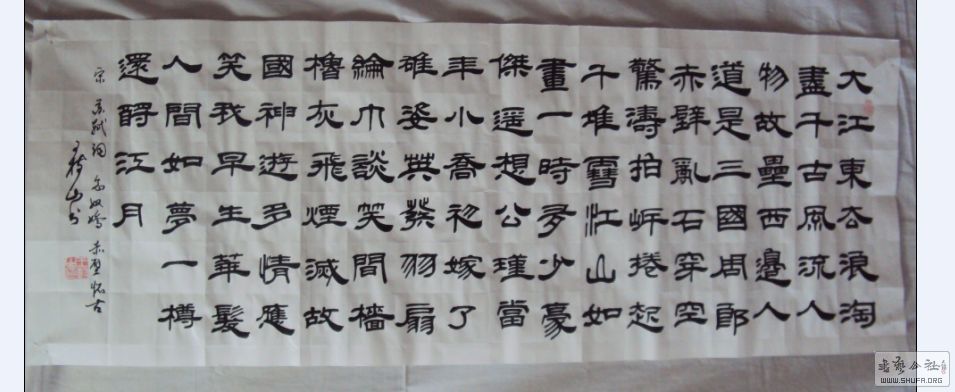 大江東去浪淘
盡千古風流人
物故壘西邊人
道是三國周郎
赤壁亂石穿空
驚濤拍岸捲起
千堆雪江山如
畫一時多少豪
傑遥想公瑾當
年小喬初嫁了
雄姿英發羽扇
綸巾談笑間檣
櫓灰飛煙滅故
國神遊多情應
笑我早生華髮
人間如夢一樽
還酹江月
宋 苏軾詞 念奴嬌 赤壁怀古
山书
WWW.SHUFA.ORG